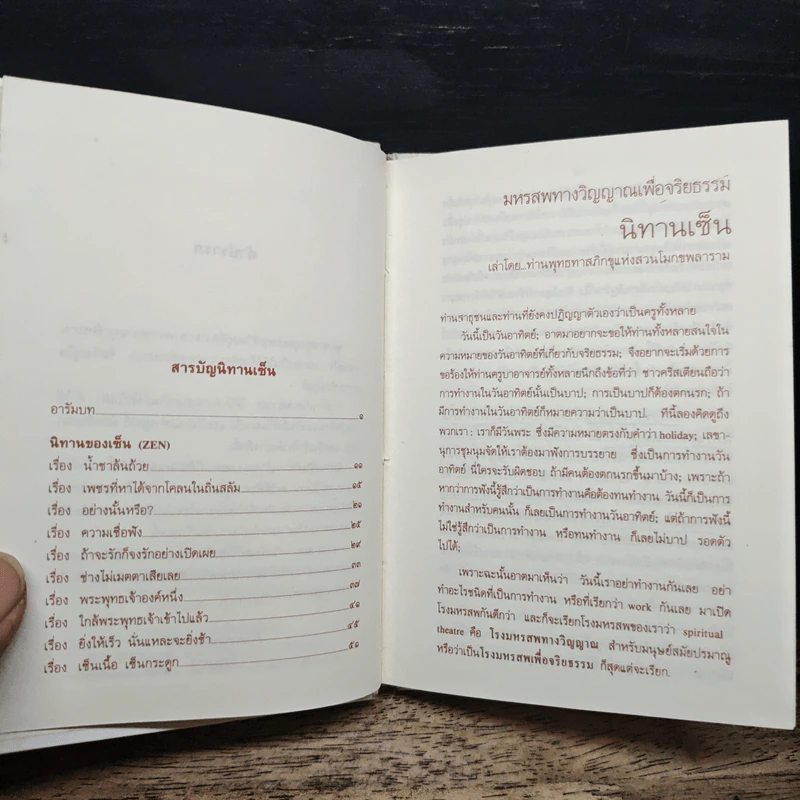 สารบัญนิทานเซ็น
อารัมบท ๑
นิทานของเซ็น (ZEN)
เรื่อง น้ำชาล้นถ้วย ๑๑
เรื่อง เพชรที่หาได้จากโคลนในถิ่นสลัม ๑๕
เรื่อง อย่างนั้นหรือ? ๒๑
เรื่อง ความเชื่อฟัง ๒๕
เรื่อง ถ้าจะรักก็จงรักอย่างเปิดเผย ๒๙
เรื่อง ช่างไม่เมตตาเสียเลย ๓๓
เรื่อง พระพุทธเจ้าองค์หนึ่ง ๓๗
เรื่อง ใกล้พระพุทธเจ้าเข้าไปแล้ว ๔๑
เรื่อง ยิ่งให้เร็ว นั่นแหละจะยิ่งช้า ๔๕
เรื่อง เซ็นเนื้อ เซ็นกระดูก ๕๑
มหรสพทางวิญญาณเพื่อจริยธรรม
นิทานเซ็น
เล่าโดย...ท่านพุทธทาสภิกขุแห่งสวนโมกขพลาราม
ท่านสาธุชนและท่านที่ยังคงปฏิญญาตัวเองว่าเป็นครูทั้งหลาย
วันนี้เป็นวันอาทิตย์; อาตมาอยากจะขอให้ท่านทั้งหลายสนใจใน
ความหมายของวันอาทิตย์ที่เกี่ยวกับจริยธรรม; จึงอยากจะเริ่มด้วยการ
ขอร้องให้ท่านครูบาอาจารย์ทั้งหลายนึกถึงข้อที่ว่า ชาวคริสเตียนถือว่า
การทำงานในวันอาทิตย์นั้นเป็นบาป; การเป็นบาปก็ต้องตกนรก; ถ้า
มีการทำงานในวันอาทิตย์ก็หมายความว่าเป็นบาป. ทีนี้ลองคิดดูถึง
พวกเรา : เราก็มีวันพระ ซึ่งมีความหมายตรงกับคำว่า holiday; เลขา-
นุการชุมนุมจัดให้เราต้องมาฟังการบรรยาย ซึ่งเป็นการทำงานวัน
อาทิตย์ นี่ใครจะรับผิดชอบ ถ้ามีคนต้องตกนรกขึ้นมาบ้าง; เพราะถ้า
หากว่าการฟังนี้รู้สึกว่าเป็นการทำงานคือต้องทนทำงาน วันนี้ก็เป็นการ
ทำงานสำหรับคนนั้น ก็เลยเป็นการทำงานวันอาทิตย์; แต่ถ้าการฟังนี้
ไม่ใช่รู้สึกว่าเป็นการทำงาน หรือทนทำงาน ก็เลยไม่บาป รอดตัว
ไปได้;
เพราะฉะนั้นอาตมาเห็นว่า วันนี้เราอย่าทำงานกันเลย อย่า
ทำอะไรชนิดที่เป็นการทำงาน หรือที่เรียกว่า work กันเลย มาเปิด
โรงมหรสพกันดีกว่า และก็จะเรียกโรงมหรสพของเราว่า spiritual
theatre คือ โรงมหรสพทางวิญญาณ สำหรับมนุษย์สมัยปรมาณู
หรือว่าเป็นโรงมหรสพเพื่อจริยธรรม ก็สุดแต่จะเรียก.